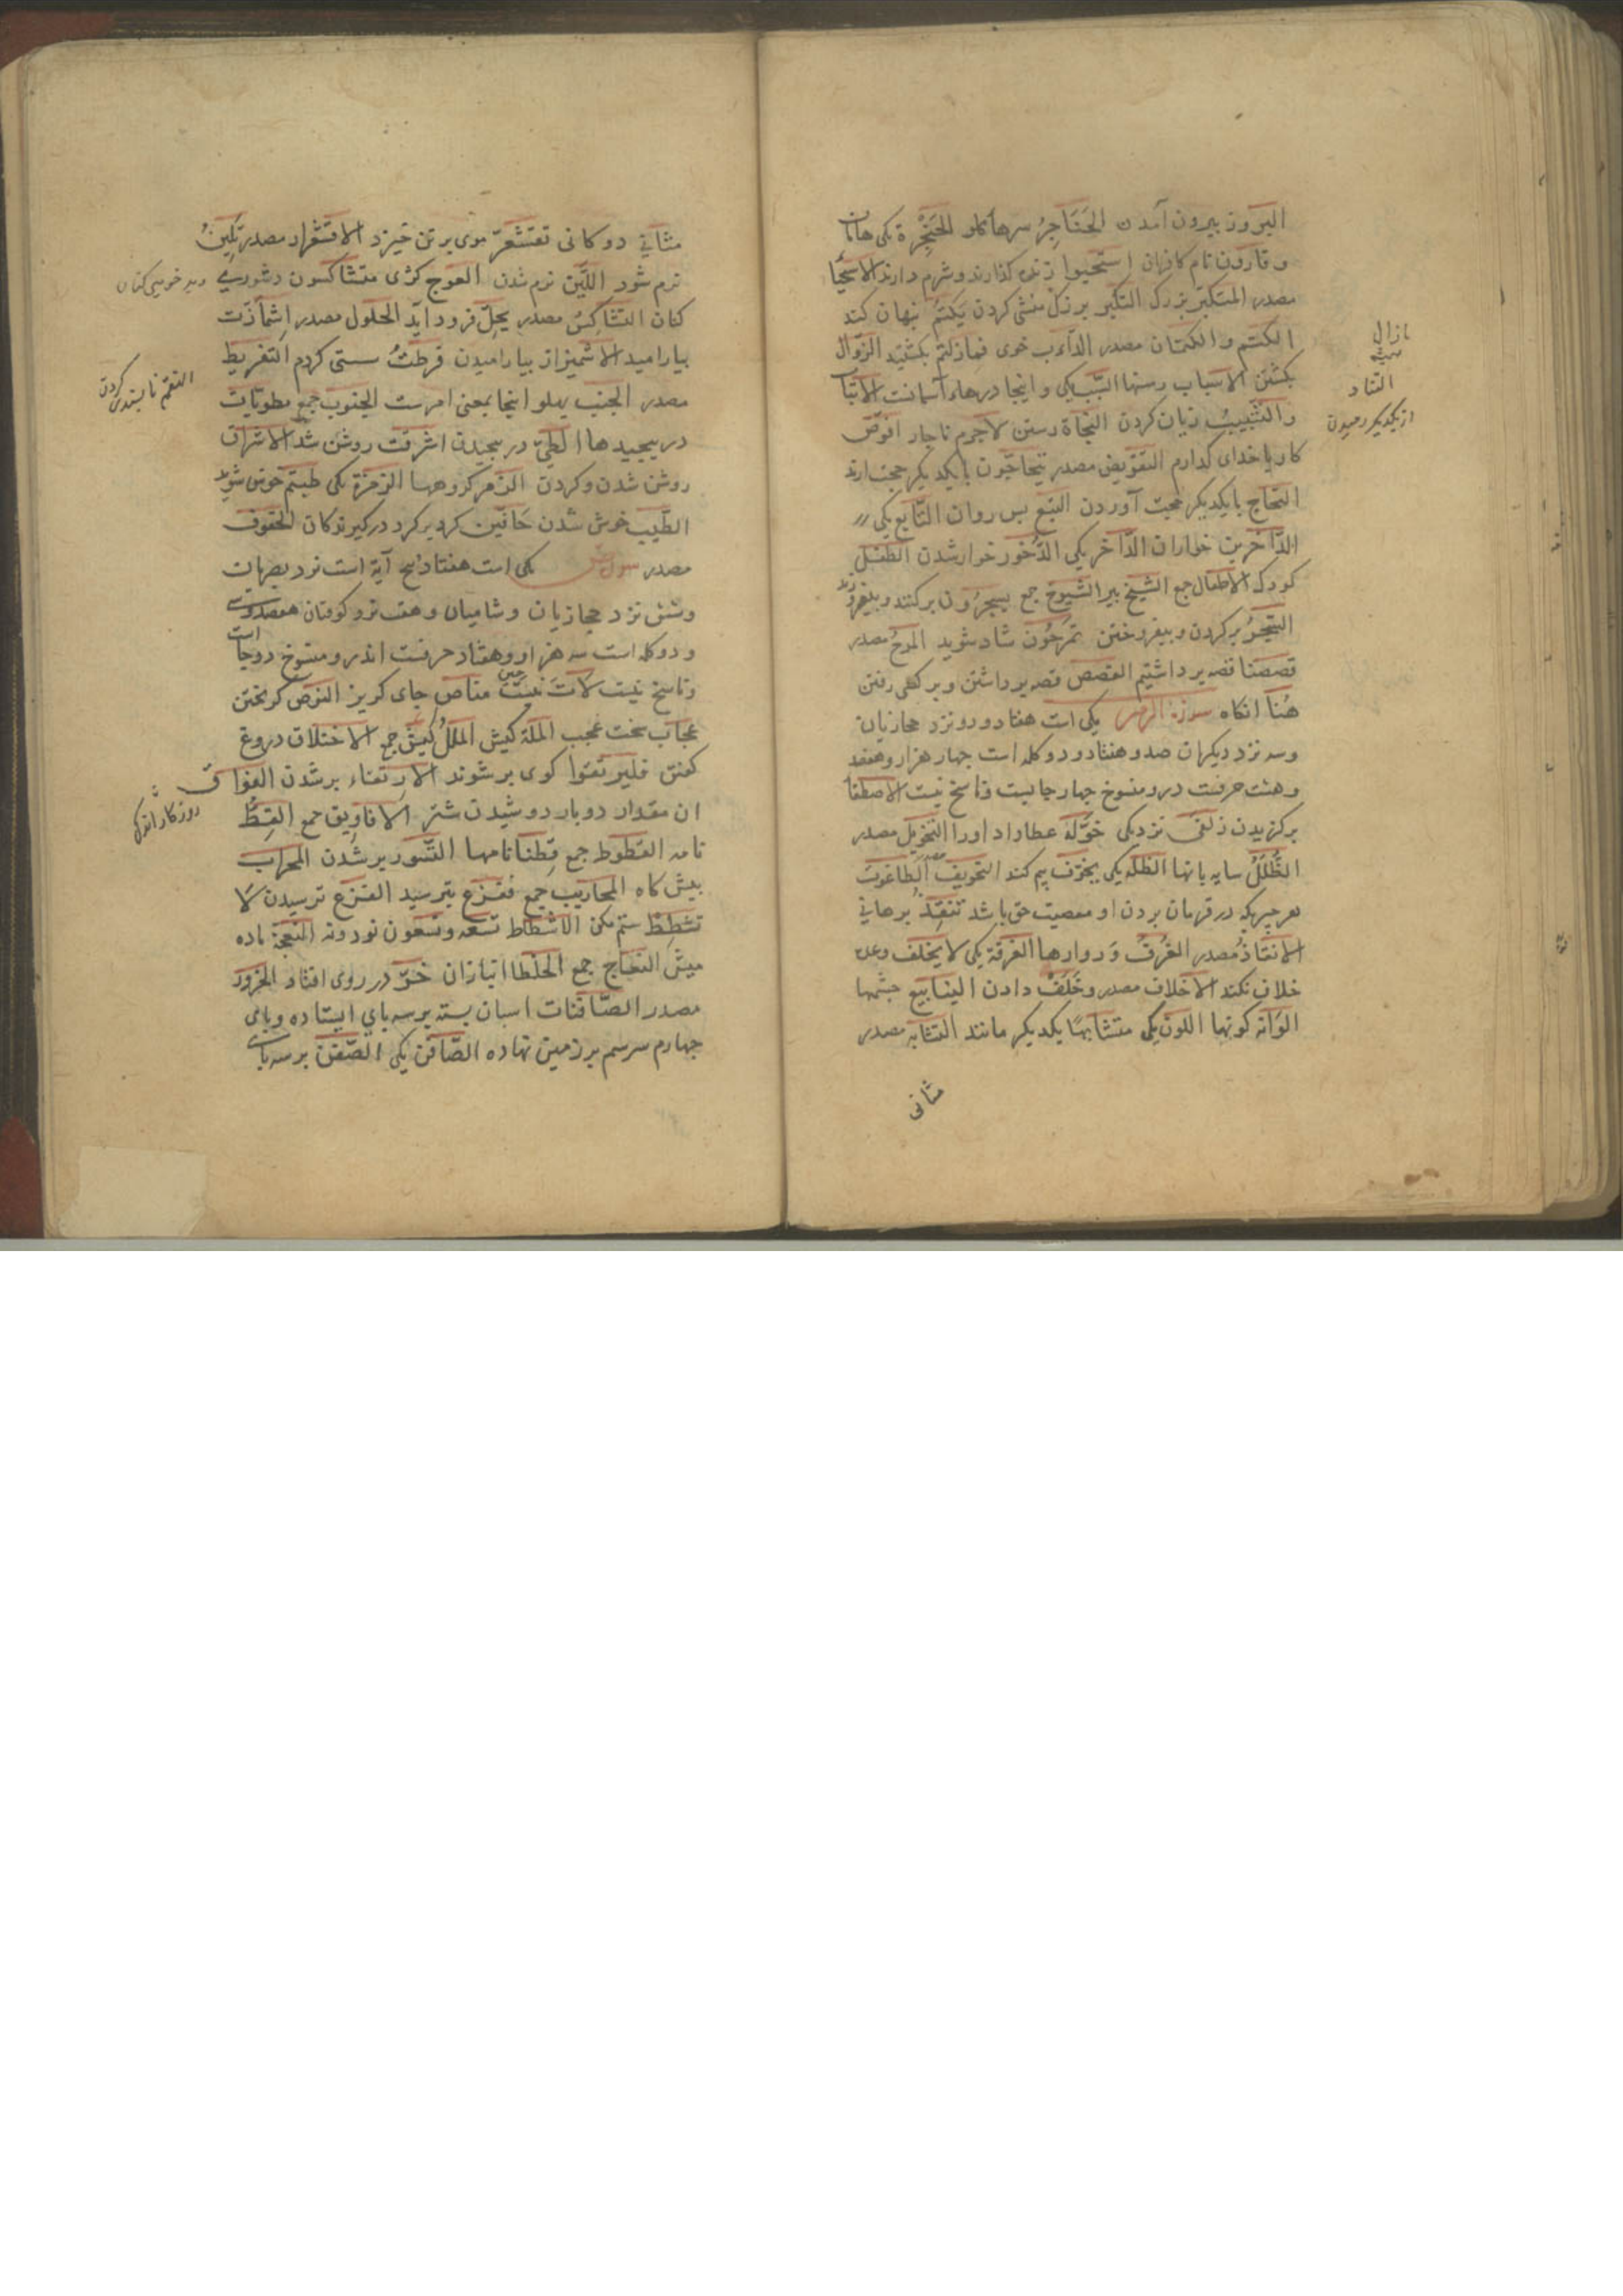 البروز بیرون آمدن الحَنَاجِرُ سرها کلو الحَنْجِرة یکی هامان
و قارون نام کافران اِستَحیوا زنده کذارند و شرم دارند الاستحیا
مصدر المتکبّر بزرک التکبر بزرک منشی کردن یَکتُمُ بنهان کند
الکتم و الکتمان مصدر الدّاءب خوی فمازلتم بکشتید الزّوال
بکشتن الاسباب رسنها السّبب یکی و اینجا درهاء آسمانست
والتّتبیبُ زیان کردن النجاة رستن لاجرم ناچار افوّض
کار با خدای کذارم التفویض مصدر یتحاجّون با یکدیکر حجت ارند
التحاج بایکدیکر حجت آوردن التبع بس روان التّابع یکی
الدّاخرین خواران الدّاخر یکی الدّخور خوار شدن الطفل
کودک الاطفال جمع الشیخ بیر الشیوخ جمع یسجرُون برکنند و بیفروزند
السّجرُ برکردن و بیفروختن تمرحُون شاد شوید المرحُ مصدر
قصصنا قصه برداشتیم القصص قصه برداشتن و بر کفی رفتن
هُنا انکاه سورة الزمر یکی است هفتاد و دو نزد حجازیان
وسه نزد دیکران صد و هفتاد و دو کلمه است چهار هزار و هفصد
و هشت حرفست در و منسوخ چهار جایست و ناسخ نیست الاصطفا
برکزیدن زلفی نزدیکی خوّله عطا داد اورا التخویل مصدر
الظُّلَلُ سایه بانها الظلّه یکی یخوّف بیم کند التخویف مصدر الطاغوت
هر چیزیکه در فرمان بردن او معصیت حق باشد تنقِذُ برهانی
الانقاذُ مصدر الغُرَفُ وَروارها الغرفة یکی لا یخلف وعده
خلاف نکند الاخلاف مصدر و خَلَفْ دادن الینابیع چشمها
الوانه کونها اللون یکی متشابهًا یکدیکر مانند التشابه مصدر
مثانی
مازال
التناد
از یکدیکر رمیدن
مثانی دوکانی تقشعرّ موی بر تن خیزد الاقشعرار مصدر تَلِینُ
نرم شود اللّین نرم شدن العوج کژی متشاکسون دشوری
کنان التشاکسُ مصدر یحِلّ فرود آید الحلول مصدر اشمأزّت
بیارامید الاشمیزاز بیارامیدن فرطتُ سستی کردم التفریط
مصدر الجنب بهلو اینجا بمعنی امرست الجنوب جمع مطویات
در بیچیدها الطیّ در بیچیدن اشرقت روشن شد الاشراق
روشن شدن و کردن الزمر کروهها الزمرة یکی طبتم خوش شوید
الطّیب خوش شدن حَافّین کرد بر کرد درکیرندکان الحفوف
مصدر سورة ص مکی است هفتاد پنج آیة است نزد بصریان
و شش نزد حجازیان و شامیان و هشت نزد کوفیان هفصد و سی
و دو کلمه است سه هزار و هفتاد حرفست اندر و منسوخ دوجا است
و ناسخ نیست لاتَ نیست حین مناص جای کریز النوص کریختن
عجاب سخت عجب الملة کیش المللُ کیش جمع الاختلاق دروغ
کفتن فلیرتقوا کوی برشوند الارتقاء برشدن الفواق
ان مقدار دوبار دوشیدن شتر الافاویق جمع القِطُّ
نامه القطوط جمع قِطنا نامها التسّور برشُدن المحراب
بیش کاه المحاریب جمع ففزع بترسید الفزع ترسیدن لا
تشطِطْ ستم مکن الاشطاط تسعه و تسعون نود ونه النعجة ماده
میش النعاج جمع الخلطا انبازان خرّ در روی افتاد الخرور
مصدر الصّافنات اسبان بسته بر سه بای ایستاده و بای
چهارم سر سم بر زمین نهاده الصّافن یکی الصّفن بر سه بای
النقم نابسندی کردن
روزکار اندک